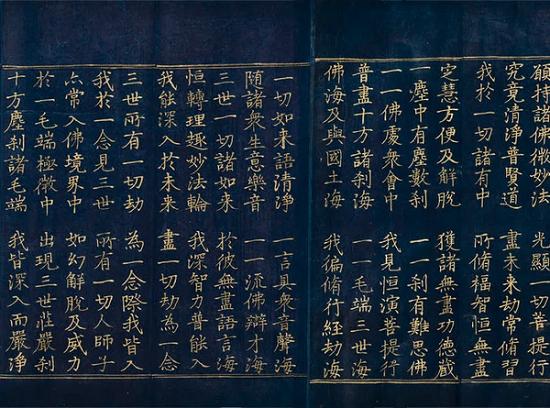 願持諸佛微妙法　光顯一切菩提行
究竟清淨普賢道　盡未來劫常脩習
我於一切諸有中　所脩福智恒無盡
定慧方便及解脫　獲諸無盡功德藏
一塵中有塵數刹　一一刹有難思佛
一一佛處衆會中　我見恒演菩提行
普盡十方諸刹海　一一毛端三世海
佛海及與國土海　我徧脩行經劫海
一切如來語清淨　一言具衆音聲海
随諸衆生意樂音　一一流佛辯才海
三世一切諸如來　於彼無盡語言海
恒轉理趣妙法輪　我深智力普能入
我能深入於未來　盡一切劫為一念
三世所有一切劫　為一念際我皆入
我於一念見三世　所有一切人師子
亦常入佛境界中　如幻解脫及威力
於一毛端極微中　出現三世莊嚴刹
十方塵刹諸毛端　我皆深入而嚴淨